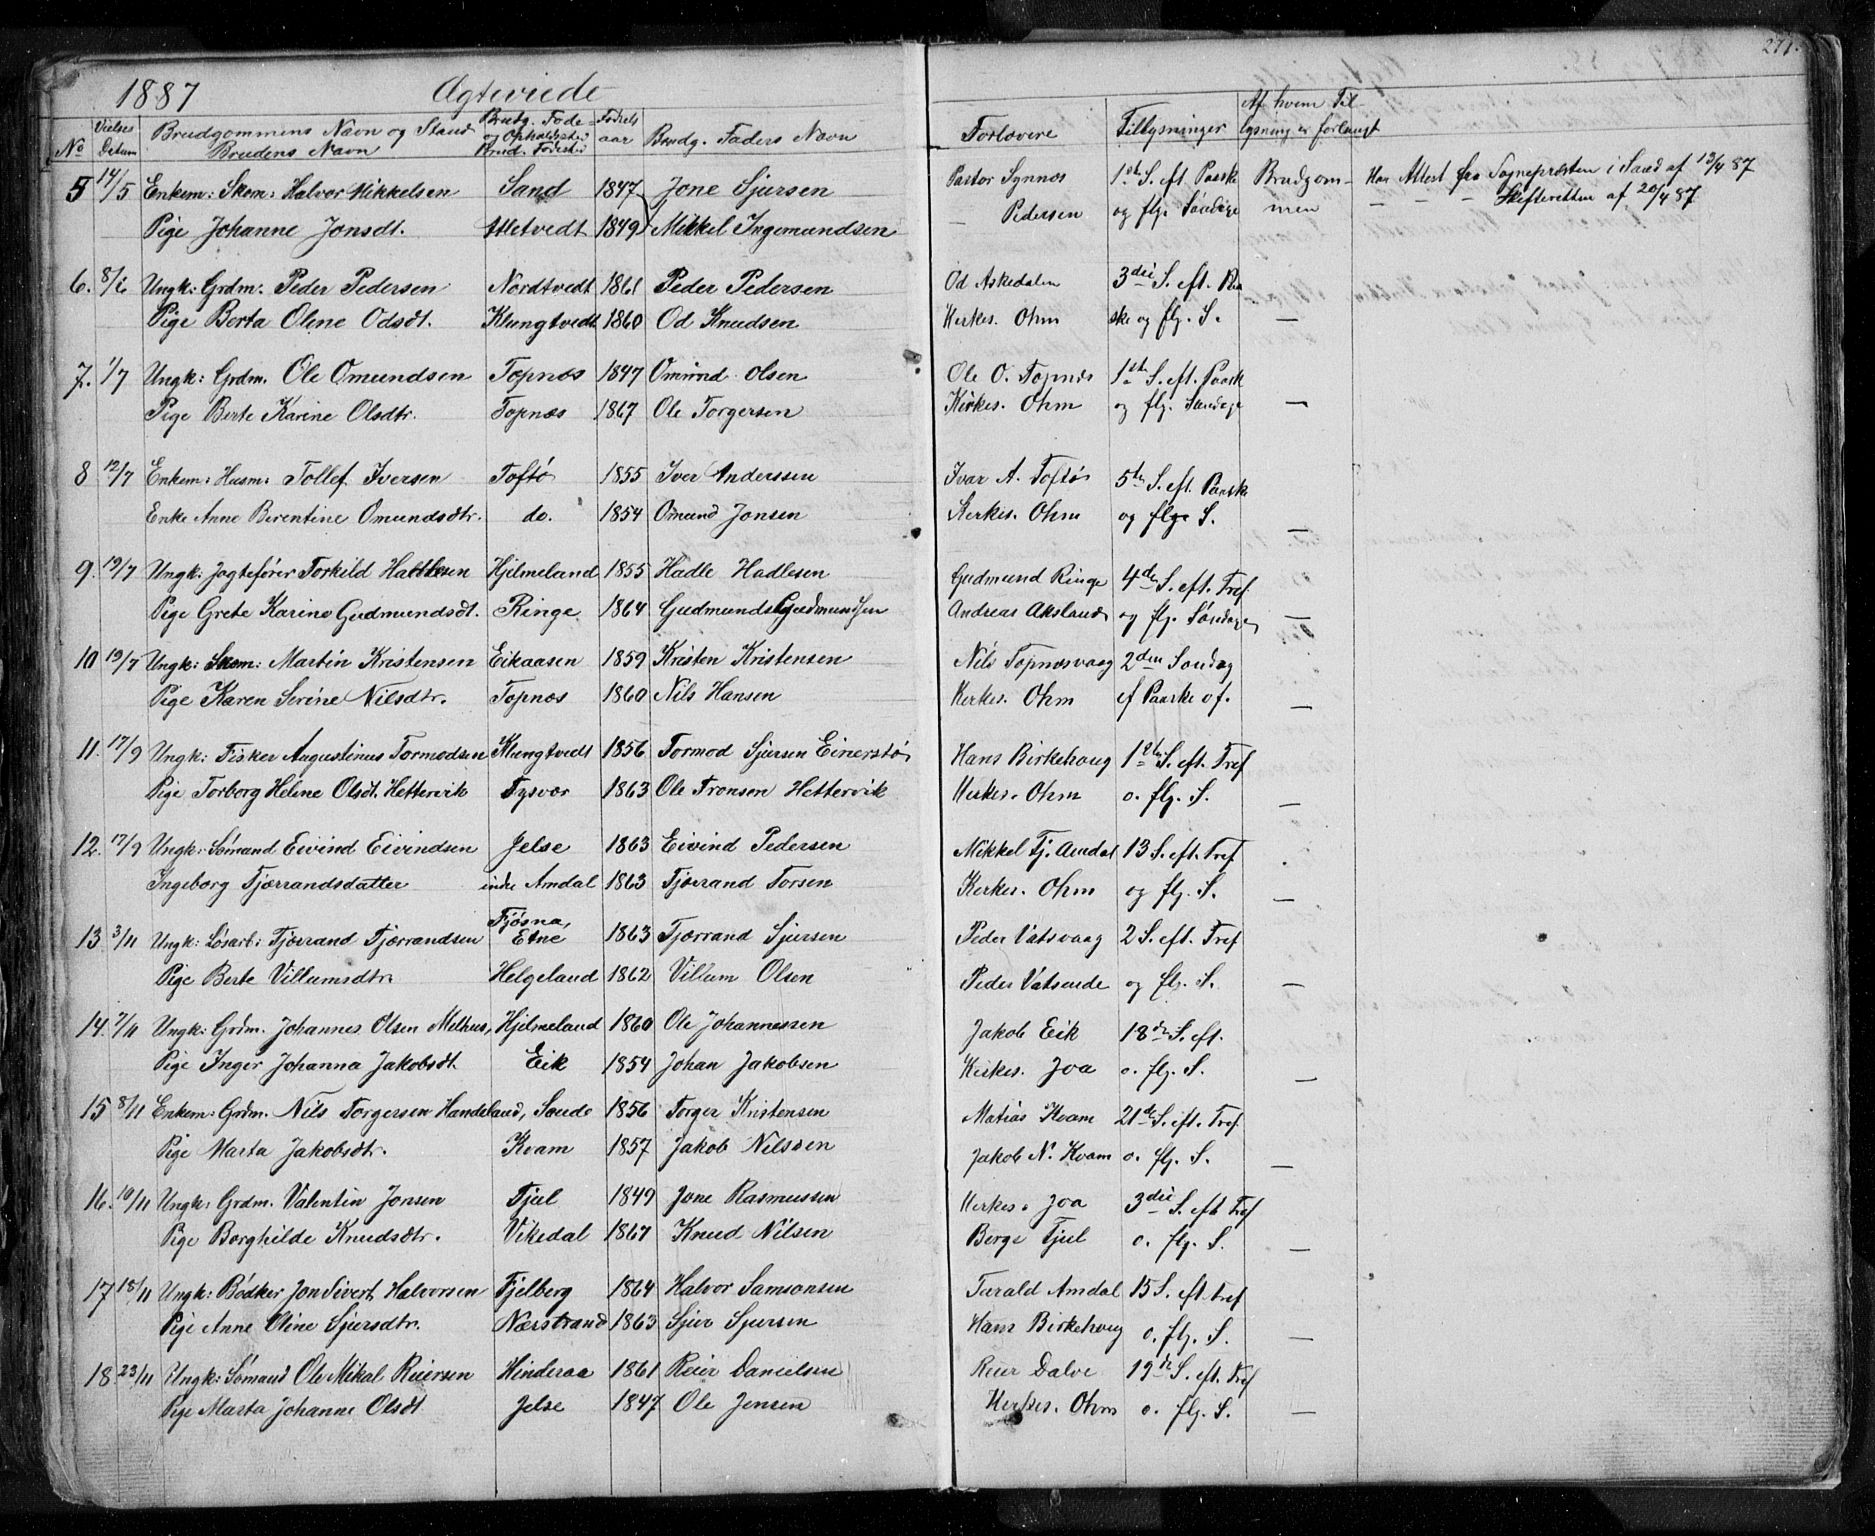 271.
1887 Ægteviede
No Vielses Datum Brudgommens Navn og Stand Brudens Navn Brudg. Føde- og Opholdssted Brud. Fødested Fødsels aar Brudg. Faders Navn Forlovere Tillysninger Af hvem Til- lysning er forlangt
5 14/5 Enkem: Skom: Halvor Mikkelsen Sand 1847 Jone Sjursen Pastor Synnes 1ste S. eft Paaske Brudgom- Har Attest fra Sognepræsten i Sand af 13/4 87
Pige Johanne Jonsdt. Attetvedt 1849 Mikkel Ingemundsen — Pedersen og flg. Søndage men — — — Skifteretten af 20/4 87
6. 8/6 Ungk: Grdm. Peder Pedersen Nordtvedt 1861 Peder Pedersen Od Askedalen 3die S. eft. Paa
Pige Berta Oline Odsdt. Klungtvedt 1860 Od Knudsen Kirkes. Ohm ske og flg. S. —
7. 1/7 Ungk: Grdm. Ole Omundsen Topnes 1847 Omund Olsen Ole O. Topnes 1ste S. eft. Paask
Pige Berte Karine Olsdtr. Topnæs 1867 Ole Torgersen Kirkes. Ohm og flg. Søndage —
8 12/7 Enkem: Husm: Tollef Iversen Toftø 1855 Iver Anderssen Ivar A. Toftø 5te S. eft. Paaske
Enke Anne Berentine Omundsdtr. do. 1854 Omund Jonsen Kirkes. Ohm og flge S. —
9. 19/7 Ungk: Jagtefører Torkild Hadlesen Hjelmeland 1855 Hadle Hadlesen Gudmund Ringe 4de S. eft. Tref.
Pige Grete Karine Gudmundsdt. Ringe 1864 Gudmund Gudmundsen Andreas Aksland og flg. Søndage —
10 19/7 Ungk: Skom: Martin Kristensen Eikaasen 1859 Kristen Kristensen Nils Topnesvaag 2den Søndag
Pige Karen Serine Nilsdtr. Topnæs 1860 Nils Hansen Kirkes. Ohm ef Paaske o f. —
11. 17/9 Ungk: Fisker Augustinus Tormodsen Klungtvedt 1856 Tormod Sjursen Einerstø Hans Birkehaug 1ste S. eft. Tref
Pige Torborg Helene Olsdt. Hettervik Tysvær 1863 Ole Tronsen Hettervik Kirkes. Ohm o. flg. S. —
12. 17/9 Ungk: Sømand Eivind Eivindsen Jelse 1863 Eivind Pedersen Mikkel Tj. Amdal 13 S. eft. Tref
Ingeborg Tjærrandsdatter indre Amdal 1863 Tjærrand Torsen Kirkes. Ohm og flg. S. —
13 3/11 Ungk: Løsarb: Tjærrand Tjærrandsen Fjøsna, Etne 1863 Tjærrand Sjursen Peder Vatsvaag 2 S. eft. Tref
Pige Berte Villumsdtr. Helgeland 1862 Villum Olsen Peder Vatsende og flg. S. —
14. 7/11 Ungk: Grdm. Johannes Olsen Melhus, Hjelmeland 1860 Ole Johannessen Jakob Eik 18de S. eft.
Pige Inger Johanna Jakobsdt. Eik 1854 Johan Jakobsen Kirkes. Joa o. flg. S. —
15 8/11 Enkem: Grdm. Nils Torgersen Handeland, Saude 1856 Torger Kristensen Matias Kvam 21de S. eft. Tref.
Pige Marta Jakobsdtr. Kvam 1857 Jakob Nilssen Jakob N. Kvam o. flg. S. —
16. 10/11 Ungk: Grdm. Valentin Jonsen Tjul 1849 Jone Rasmussen Kirkes. Joa 3die S. eft Tref
Pige Borghilde Knudsdtr. Vikedal 1867 Knud Nilsen Berge Tjul o. flg. S. —
17 18/11 Ungk: Bødker Jon Sivert Halvorsen Fjelberg 1864 Halvor Samsonsen Tarald Amdal 15 S. eft. Tref
Pige Anne Oline Sjursdtr. Nærstrand 1863 Sjur Sjursen Hans Birkehoug o. flg. S. —
18 23/11 Ungk: Sømand Ole Mikal Reiersen Hinderaa 1861 Reier Danielsen Reier Dalve 19de S. eft. Tref
Pige Marta Johanne Olsdt Jelse 1847 Ole Jensen Kirkes. Ohm o. flg. S. —